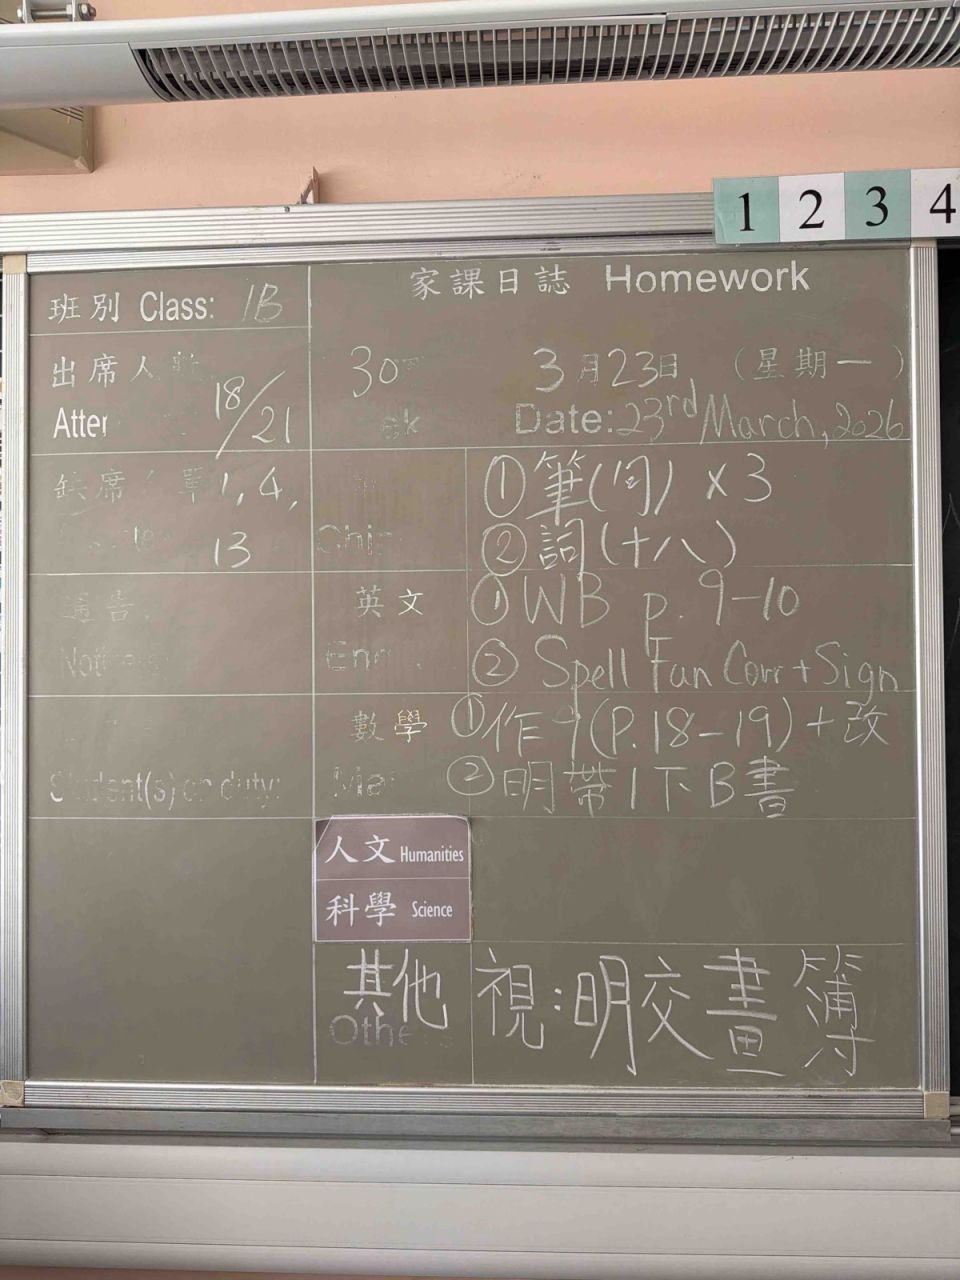 1 2 3 4
家課日誌 Homework
班別 Class: 1B
出席人數
18/21
30
3月23日 (星期一)
Date: 23rd March, 2026
缺席 1, 4,
13
① 筆(同) x3
② 詞(十八)
通告
英文
① WB p. 9-10
② Spell Fun Corr + Sign
Student(s) on duty:
數學
① 作9(P.18-19)+改
② 明帶1下B書
人文 Humanities
科學 Science
其他
視:明交畫簿